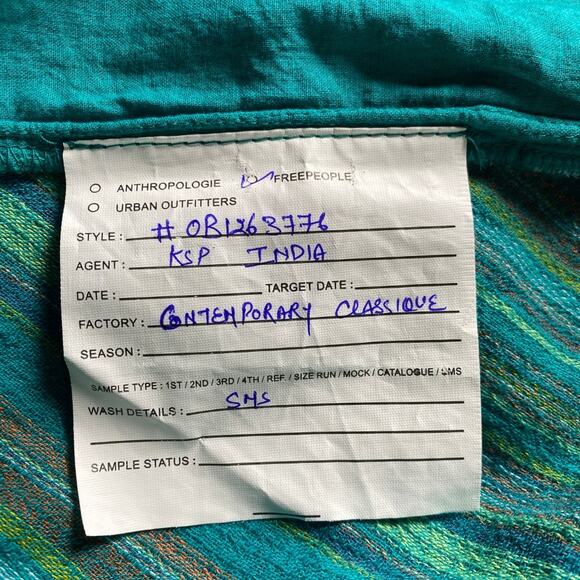 ANTHROPOLOGIE FREEPEOPLE
URBAN OUTFITTERS
STYLE : # OB1263776
AGENT : KSP INDIA
DATE : TARGET DATE :
FACTORY : CONTEMPORARY CLASSIQUE
SEASON :
SAMPLE TYPE : 1ST / 2ND / 3RD / 4TH / REF. / SIZE RUN / MOCK / CATALOGUE / SMS
WASH DETAILS : SMS
SAMPLE STATUS :